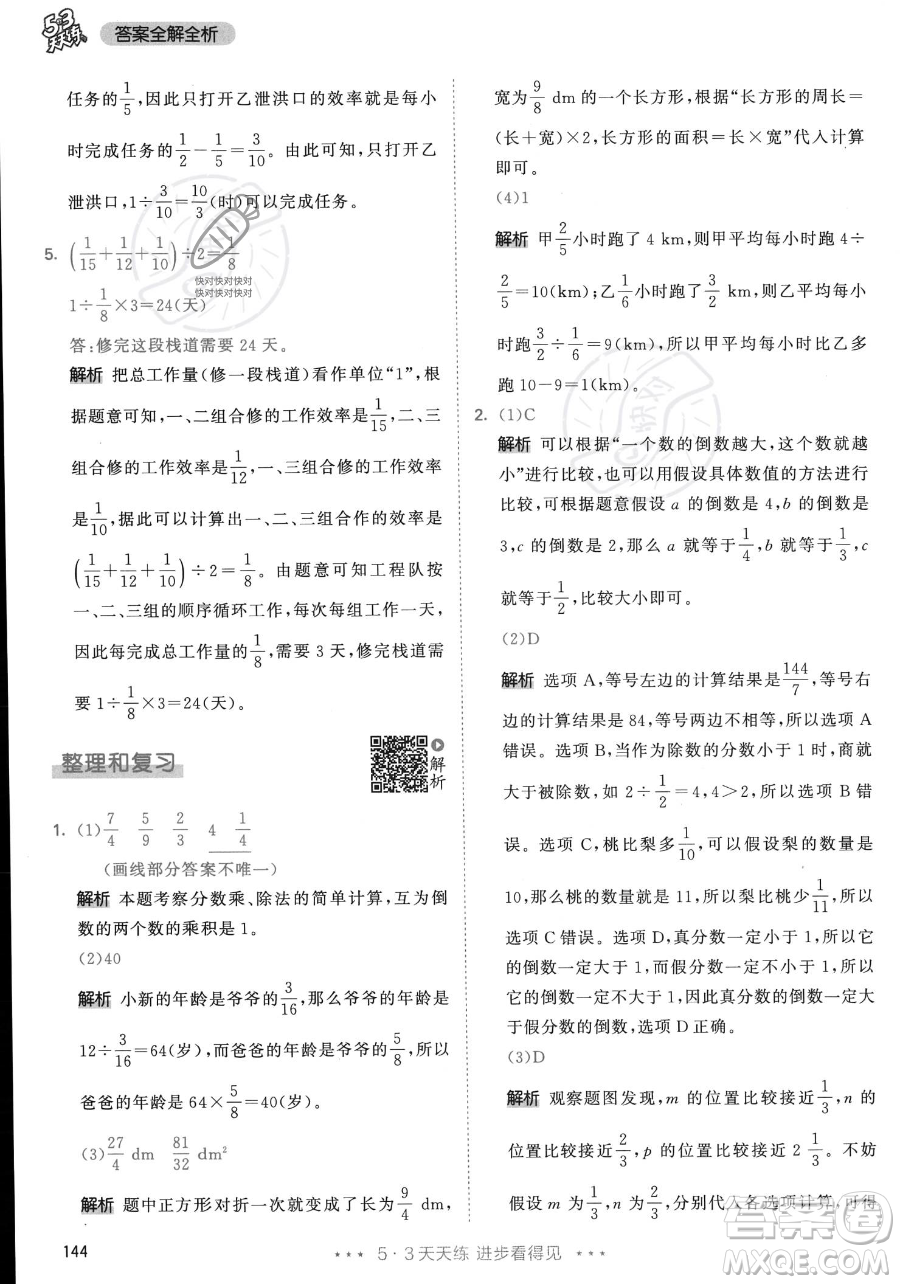 5·3天天练
答案全解全析
任务的1/5，因此只打开乙泄洪口的效率就是每小
时完成任务的1/2−1/5=3/10。因此可知，只打开乙
泄洪口，1÷3/10=10/3(时)可以完成任务。
5. (1/15+1/12+1/10)÷2=1/8
1÷1/8×3=24(天)
答:修完这段栈道需要 24 天。
解析 把总工作量(修一段栈道)看作单位“1”，根
据题意可知，一、二组合修的工作效率是1/15，二、三
组合修的工作效率是1/12，一、三组合修的工作效率
是1/10，据此可以计算出一、二、三组合作的效率是
(1/15+1/12+1/10)÷2=1/8。由题意可知工程队按
一、二、三组的顺序循环工作，每次每组工作一天，
因此每完成总工作量的1/8，需要 3 天，修完栈道需
要 1÷1/8×3=24(天)。
整理和复习
解析
1. (1)7/4 5/9 2/3 4 1/4
(画线部分答案不唯一)
解析 本题考察分数乘、除法的简单计算，互为倒
数的两个数的乘积是 1。
(2)40
解析 小新的年龄是爷爷的3/16，那么爷爷的年龄是
12÷3/16=64(岁)，爸爸的年龄是爷爷的5/8，所以
爸爸的年龄是 64×5/8=40(岁)。
(3)27/4 dm 81/32 dm²
解析 题中正方形对折一次就变成了长为9/4 dm，
宽为9/8 dm 的一个长方形，根据“长方形的周长=
(长+宽)×2，长方形的面积=长×宽”代入计算
即可。
(4)1
解析 甲2/5小时跑了 4 km，则甲平均每小时跑 4÷
2/5=10(km)；乙1/6小时跑了3/2 km，则乙平均每小
时跑3/2÷1/6=9(km)，所以甲平均每小时比乙多
跑 10−9=1(km)。
2. (1)C
解析 可以根据“一个数的倒数越大，这个数就越
小”进行比较，也可以用假设具体数值的方法进行
比较，可根据题意假设 a 的倒数是 4，b 的倒数是
3，c 的倒数是 2，那么 a 就等于1/4，b 就等于1/3，c
就等于1/2，比较大小即可。
(2)D
解析 选项 A，等号左边的计算结果是144/7，等号右
边的计算结果是 84，等号两边不相等，所以选项 A
错误。选项 B，当作为除数的分数小于 1 时，商就
大于被除数，如 2÷1/2=4，4>2，所以选项 B 错
误。选项 C，桃比梨多1/10，可以假设梨的数量是
10，那么桃的数量就是 11，所以梨比桃少1/11，所以
选项 C 错误。选项 D，真分数一定小于 1，所以它
的倒数一定大于 1，而假分数一定大于或等于 1，它
的倒数一定小于或等于 1，因此真分数的倒数一定大
于假分数的倒数，选项 D 正确。
(3)D
解析 观察题图发现，m 的位置比较接近1/3，n 的
位置比较接近2/3，p 的位置比较接近 2 1/3。不妨
假设 m 为1/3，n 为2/3，p 为 2 1/3，分别代入各选项计算，可得
144
5·3天天练 进步看得见
快对快对快对
快对快对快对
快对